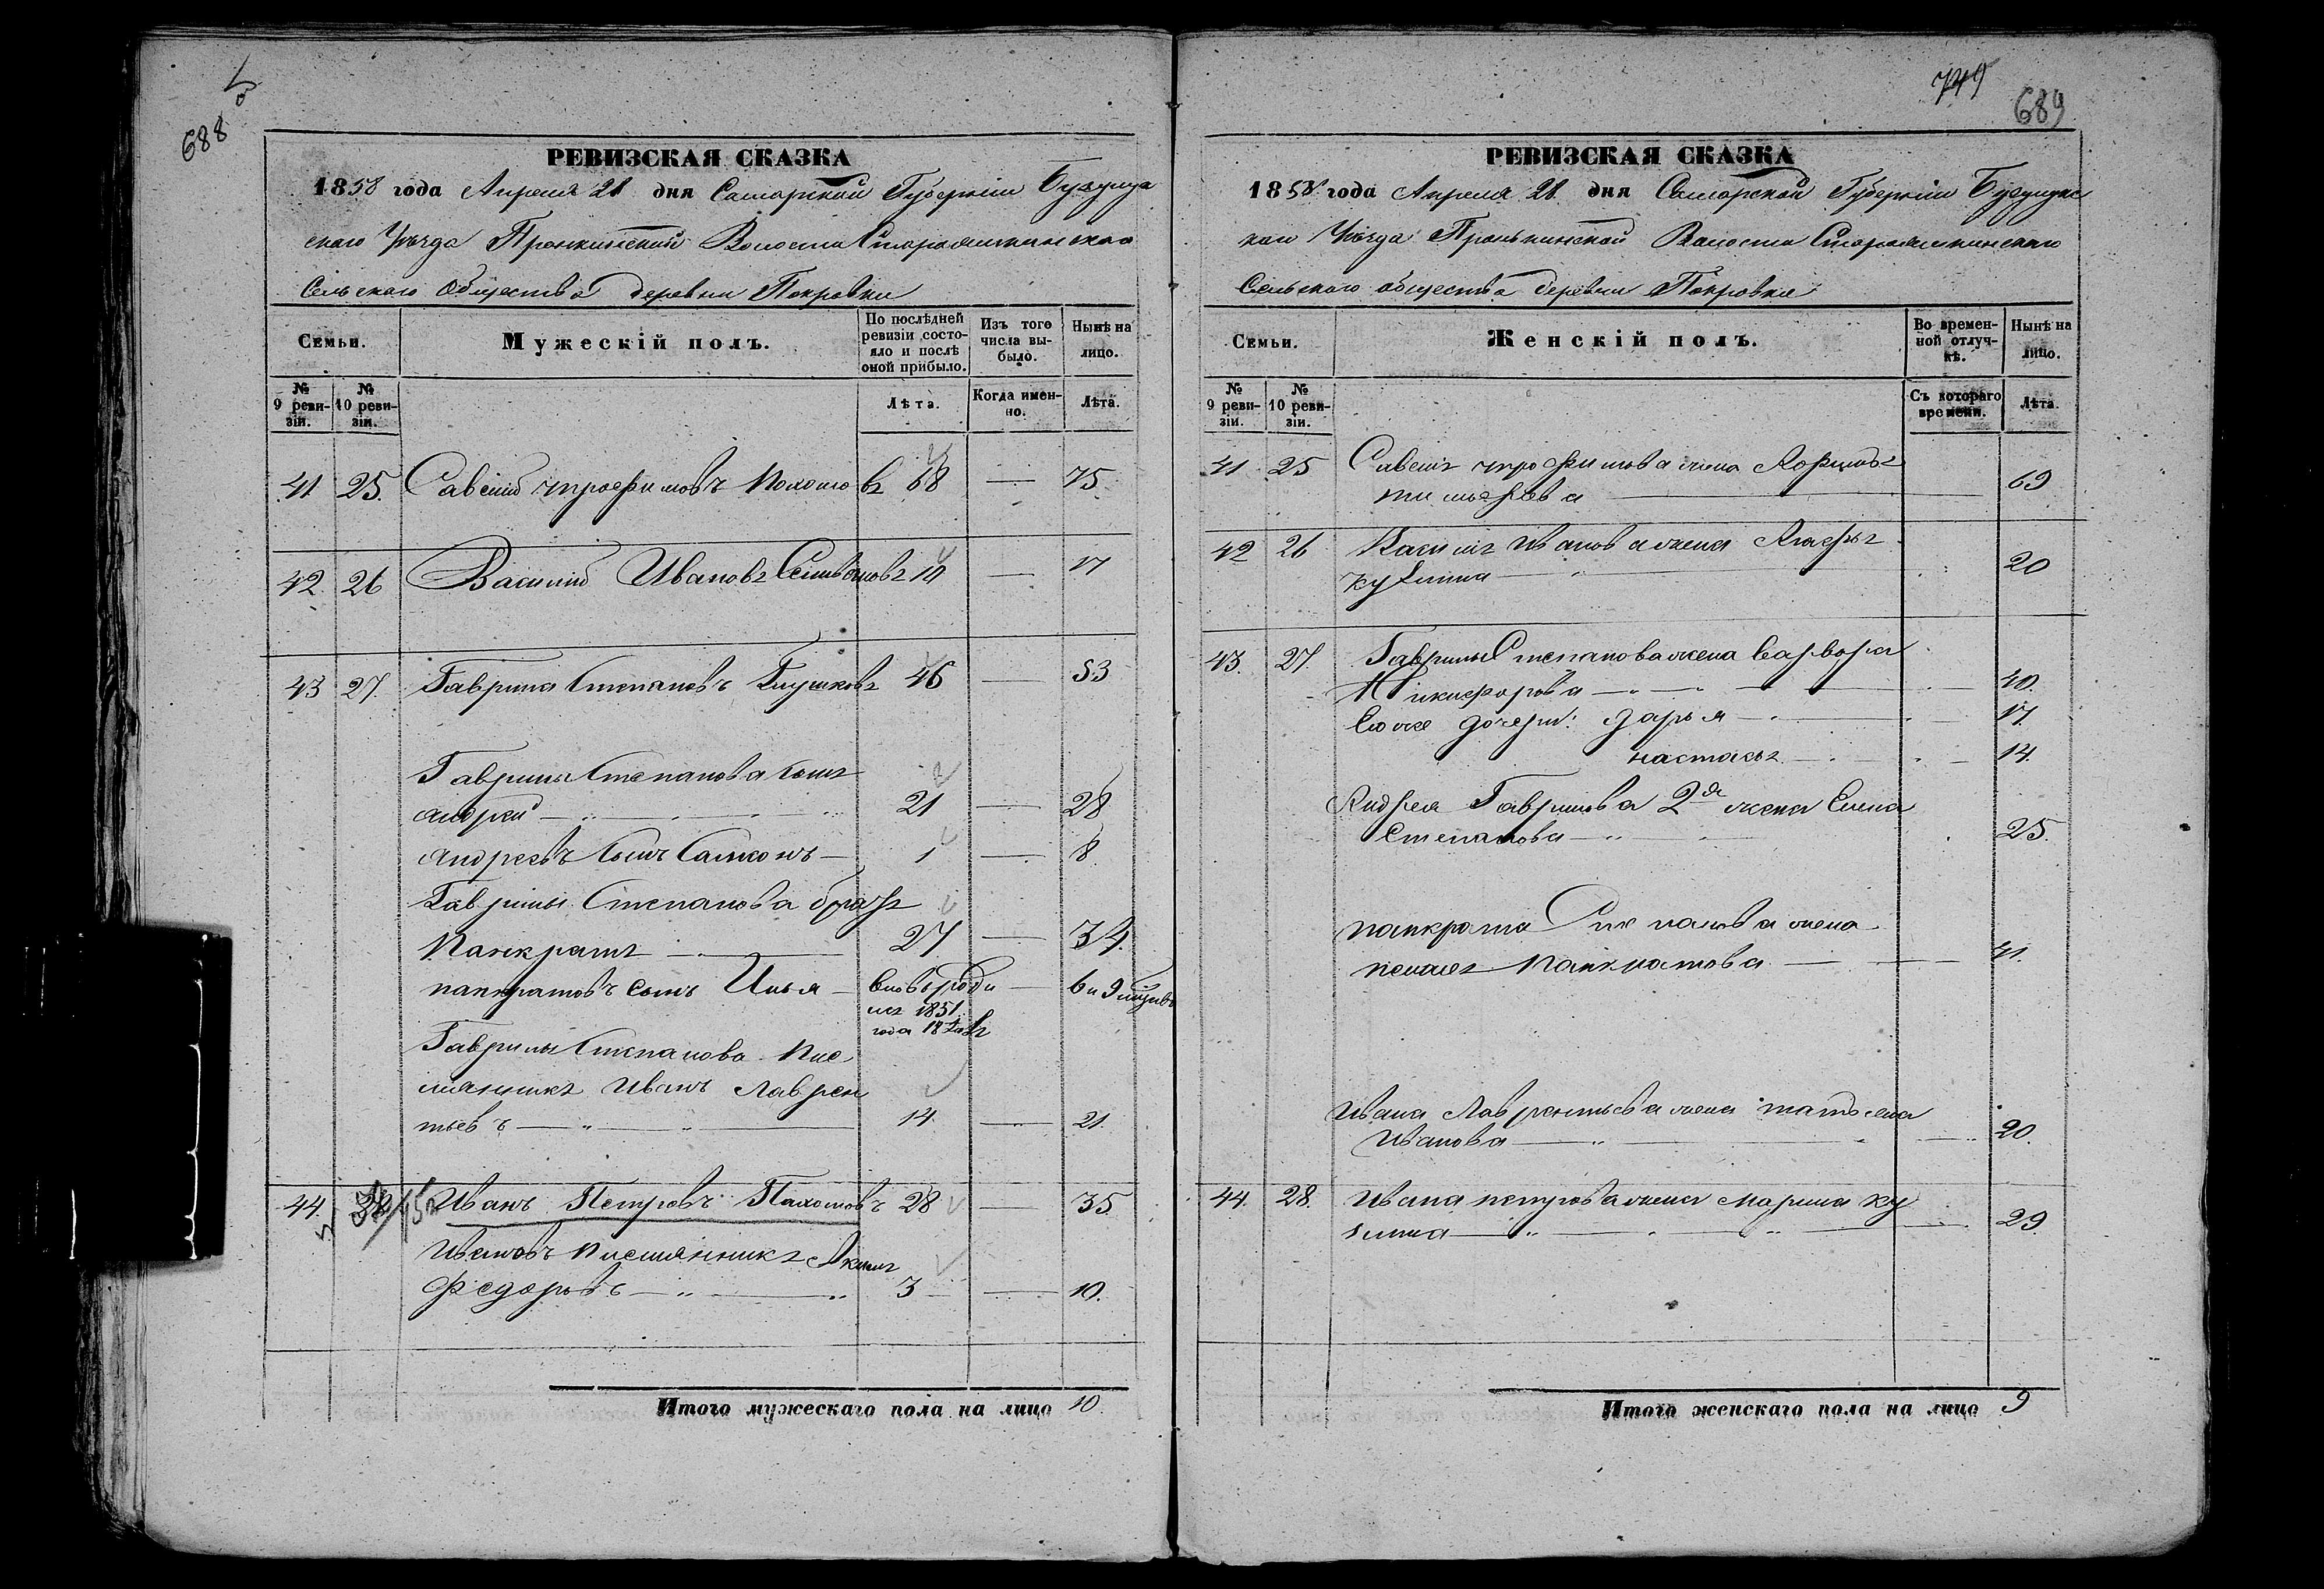 688
РЕВИЗСКАЯ СКАЗКА
1858 года Апреля 21 дня Самарской Губернiи Бузулук
скаго Уѣзда Пронкинской Волости Староашкинскаго
Сельскаго Общества деревни Покровки
Семьи.
Мужескiй полъ.
По послѣдней ревизiи состояло и послѣ оной прибыло.
Изъ того числа выбыло.
Нынѣ на лицо.
№ 9 ревизiи.
№ 10 ревизiи.
Лѣта.
Когда именно.
Лѣта.
41 25. Савелiй трофимовъ Пахомовъ 68 — 75
42. 26 Василiй Ивановъ Селивановъ 10 — 17
43 27. Гаврила Степановъ Глушковъ 46 — 53
Гаврилы Степанова сынъ
андрей — 21 — 28
андреевъ сынъ Самсонъ — 1 — 8
Гаврилы Степанова братъ
Панкратъ — 27 — 34.
панкратовъ сынъ Илья — вновь роди
лся 1851
года
6 и 9 мѣсяцовъ
Гаврилы Степанова пле
мянникъ Иванъ Лаврен
тьевъ — 14. — 21
44. 28 Иванъ Петровъ Пахомовъ 28 — 35
Ивановъ племянникъ Акимъ
Федоровъ — 3 — 10.
Итого мужескаго пола на лицо 10.
749
689
РЕВИЗСКАЯ СКАЗКА
1858 года Апреля 21 дня Самарской Губернiи Бузулукс
каго Уѣзда Пронькинской Волости Староашкинскаго
Сельскаго общества деревни Покровки
Семьи.
Женскiй полъ.
Во временной отлучкѣ.
Нынѣ на лицо.
№ 9 ревизiи.
№ 10 ревизiи.
Съ котораго времени.
Лѣта.
41 25 Савелья трофимова жена
тимофеева — 69
42 26 Василья Иванова жена Агафья
кузмина — 20
43. 27. Гаврилы Степанова жена варвара
Никифорова — 40.
Ево же дочери: дарья — 17.
настасья — 14.
Андрея Гаврилова 2я жена Елена
Степанова — 25.
панкрата Степанова жена
пелагея Панкратова — 41.
Ивана Лаврентьева жена татьяна
Иванова — 20.
44. 28. Ивана петрова жена марина ку
змина — 29.
Итого женскаго пола на лицо 9